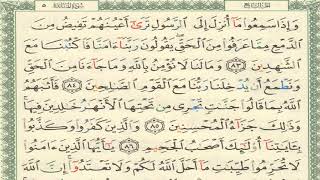 وَإِذَا سَمِعُوا۟ مَآ أُنزِلَ إِلَى ٱلرَّسُولِ تَرَىٰٓ أَعْيُنَهُمْ تَفِيضُ مِنَ
ٱلدَّمْعِ مِمَّا عَرَفُوا۟ مِنَ ٱلْحَقِّ يَقُولُونَ رَبَّنَآ ءَامَنَّا فَٱكْتُبْنَا مَعَ
ٱلشَّٰهِدِينَ ٨٣ وَمَا لَنَا لَا نُؤْمِنُ بِٱللَّهِ وَمَا جَآءَنَا مِنَ ٱلْحَقِّ
وَنَطْمَعُ أَن يُدْخِلَنَا رَبُّنَا مَعَ ٱلْقَوْمِ ٱلصَّٰلِحِينَ ٨٤ فَأَثَٰبَهُمُ
ٱللَّهُ بِمَا قَالُوا۟ جَنَّٰتٍ تَجْرِى مِن تَحْتِهَا ٱلْأَنْهَٰرُ خَٰلِدِينَ فِيهَا
وَذَٰلِكَ جَزَآءُ ٱلْمُحْسِنِينَ ٨٥ وَٱلَّذِينَ كَفَرُوا۟ وَكَذَّبُوا۟
بِـَٔايَٰتِنَآ أُو۟لَٰٓئِكَ أَصْحَٰبُ ٱلْجَحِيمِ ٨٦ يَٰٓأَيُّهَا ٱلَّذِينَ ءَامَنُوا۟
لَا تُحَرِّمُوا۟ طَيِّبَٰتِ مَآ أَحَلَّ ٱللَّهُ لَكُمْ وَلَا تَعْتَدُوٓا۟ إِنَّ ٱللَّهَ